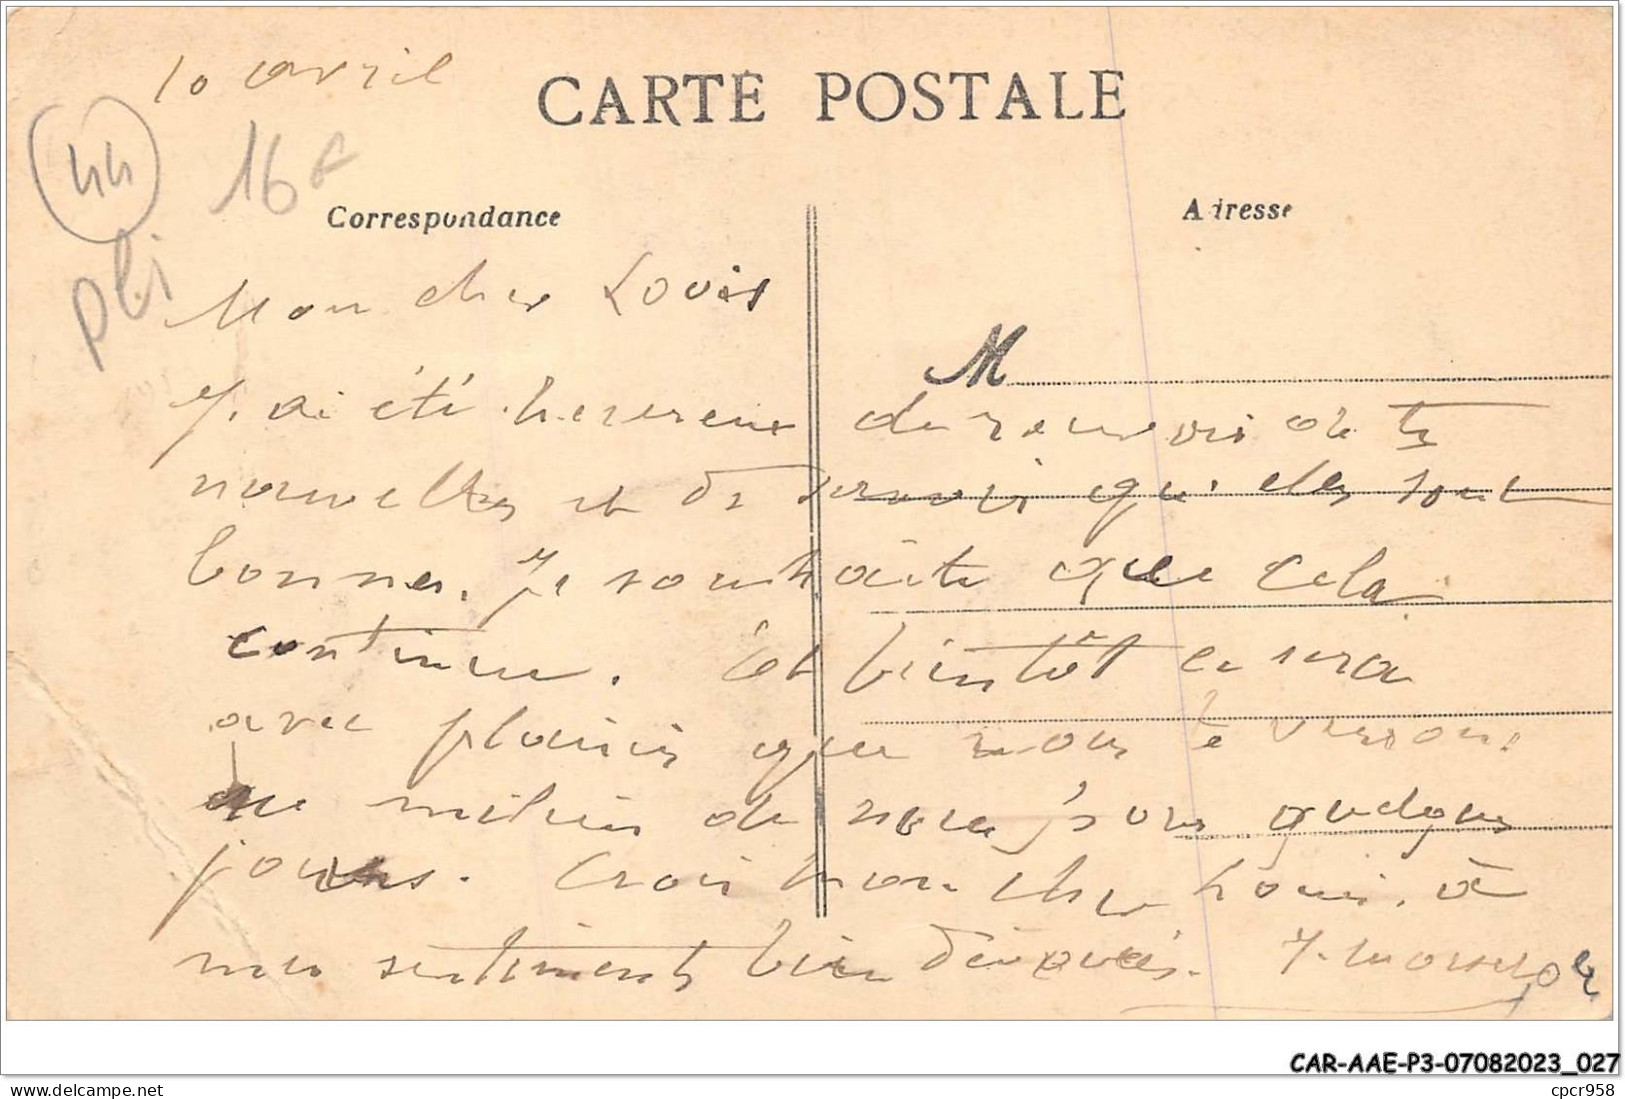 10 avril
CARTE POSTALE
44
16 F
pli
Correspondance
Adresse
Mon cher Louis
M
J'ai été heureux de recevoir de tes
nouvelles et de savoir qu'elles sont
bonnes. Je souhaite que cela
continue. Et bientôt ce sera
avec plaisir que nous te verrons
au milieu de nous pour quelques
jours. Crois mon cher Louis, à
mes sentiments bien dévoués.
CAR-AAE-P3-07082023_027
cpcr958